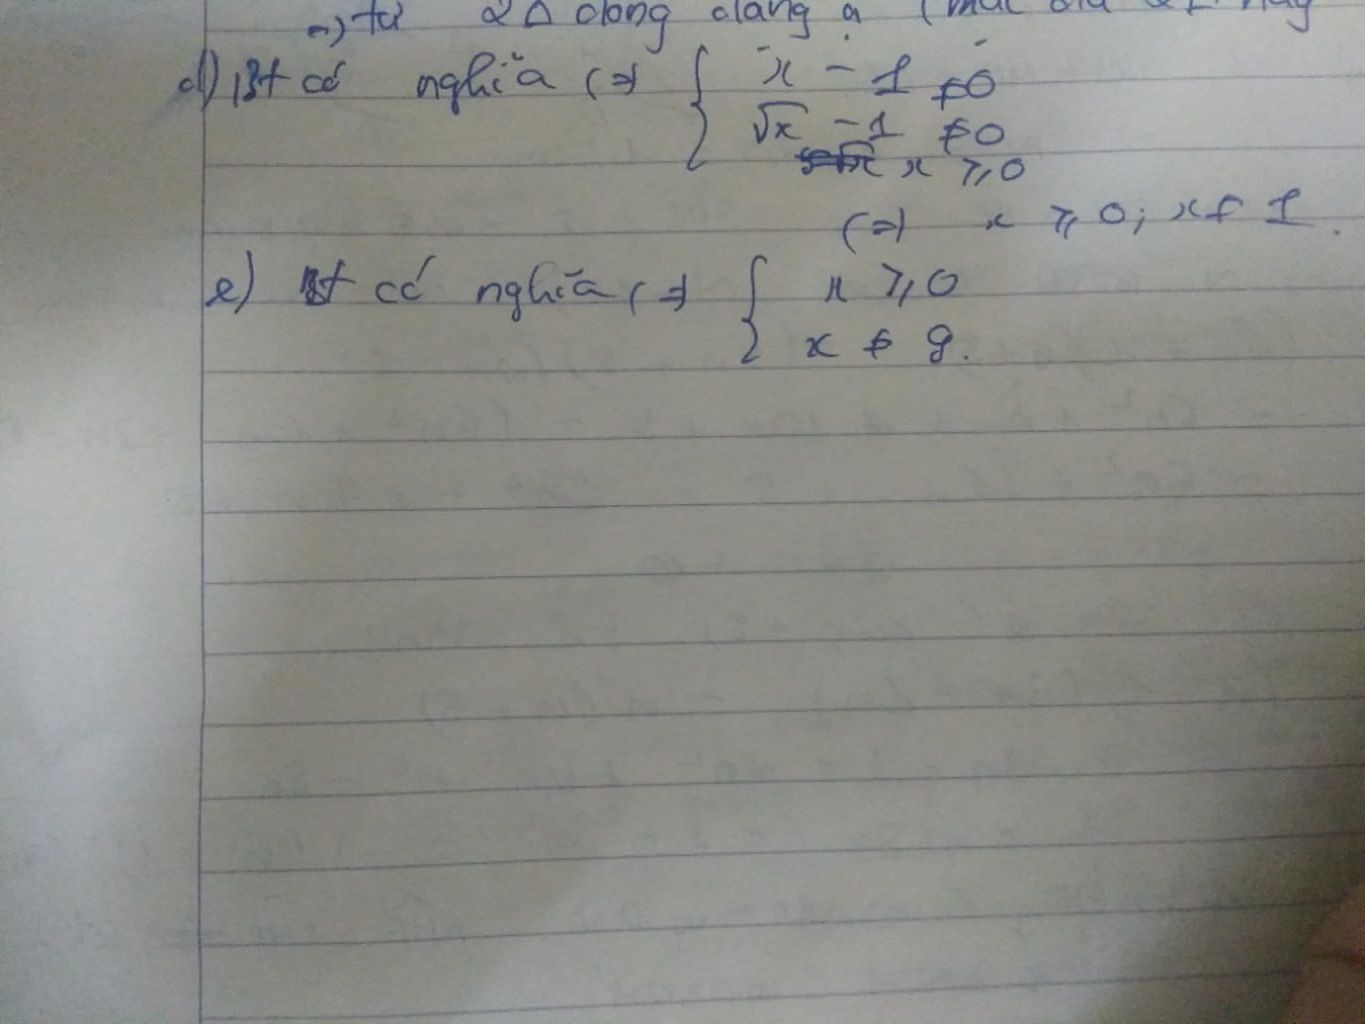 =) từ 2Δ đồng dạng
d) Bt có nghĩa (=) { x - 1 ≠ 0
√x - 1 ≠ 0
x ≥ 0
(=) x ≥ 0; x ≠ 1.
e) Bt có nghĩa (=) { x ≥ 0
x ≠ 9.